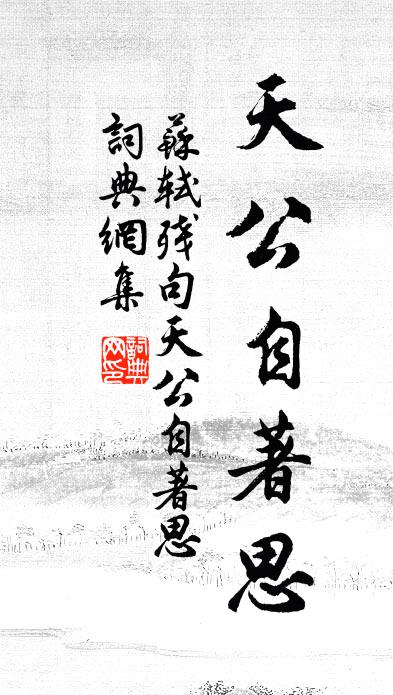 天公自著思
蘇軾殘句天公自著思
詞典網集
詞典
网印